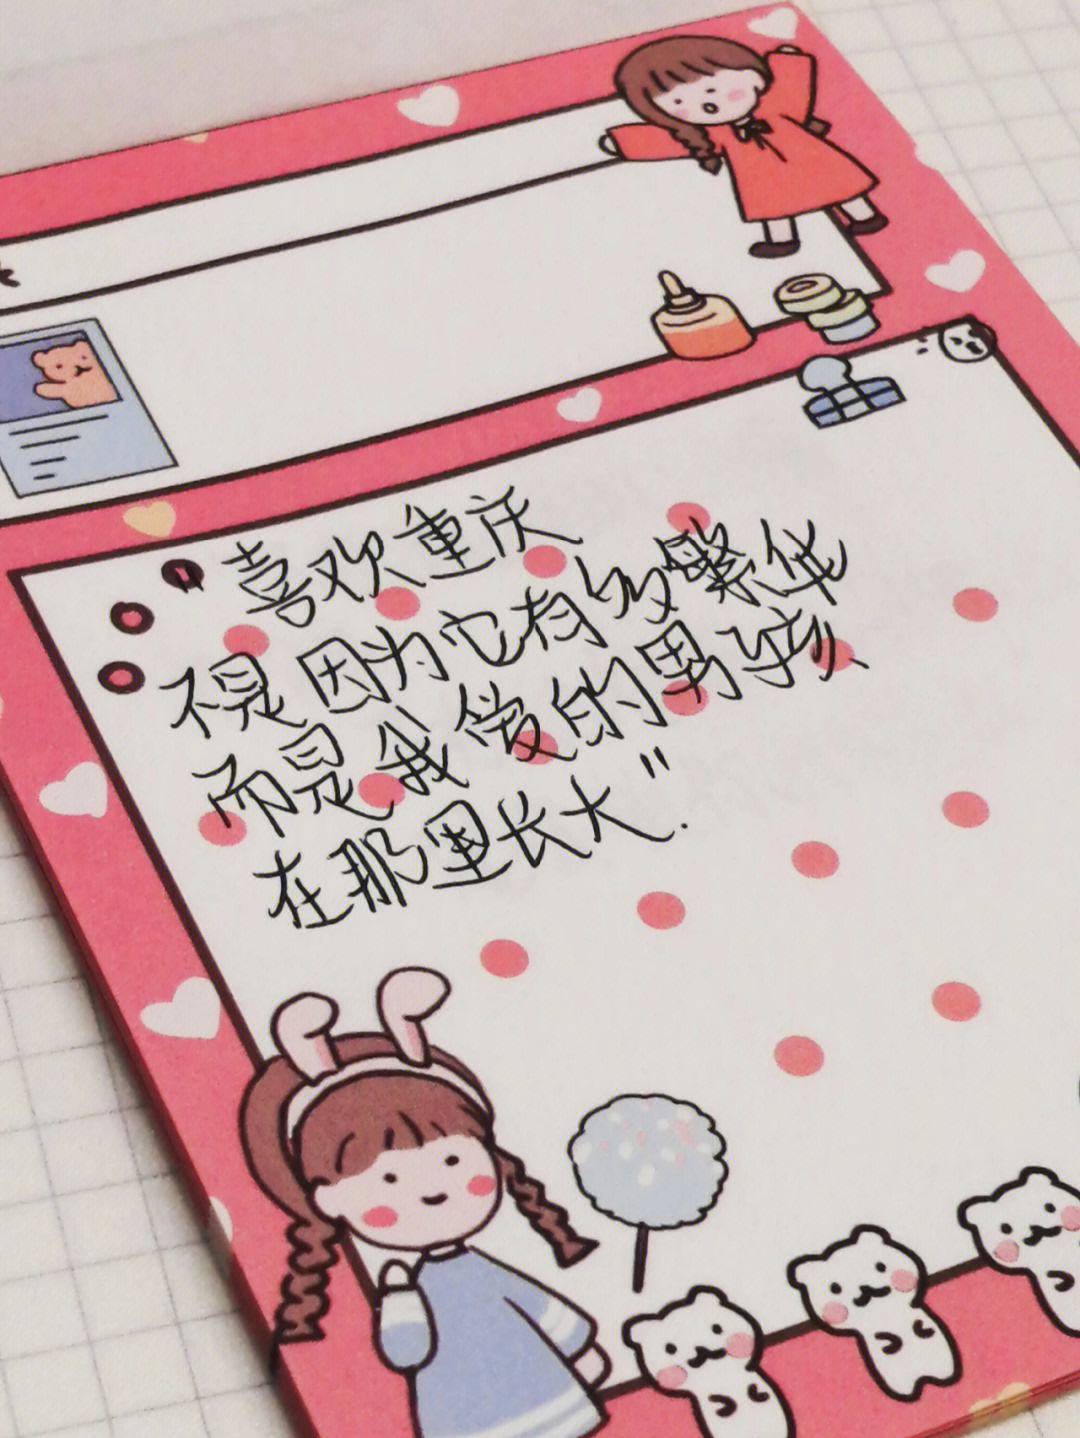 喜欢重庆
不是因为它有多繁华
而是我爱的男孩
在那里长大".